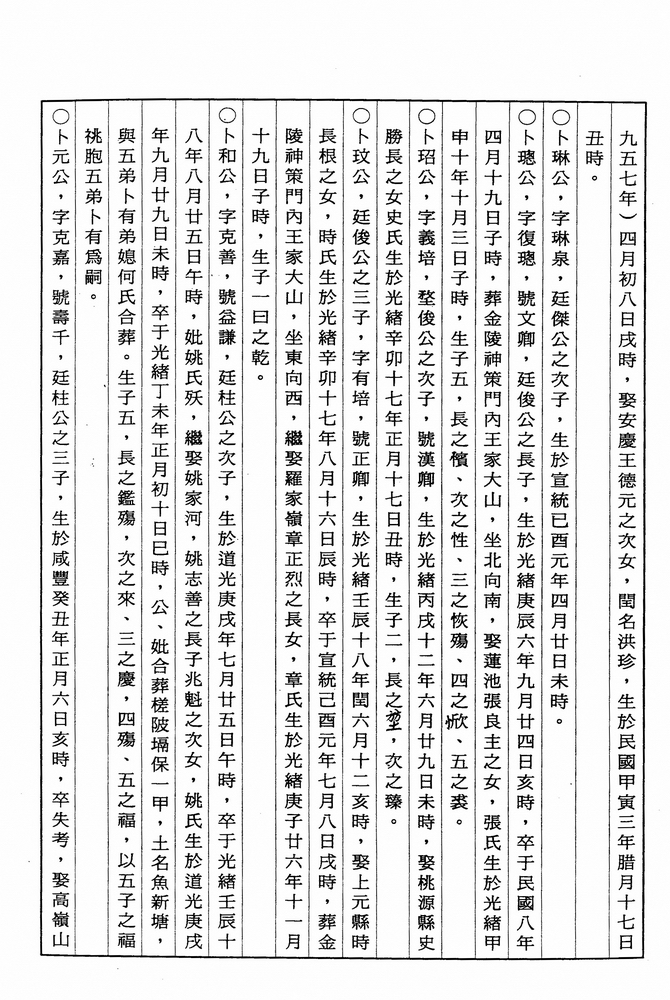 九五七年）四月初八日戌時，娶安慶王德元之次女，閨名洪珍，生於民國甲寅三年腊月十七日
丑時。
○卜琳公，字琳泉，廷傑公之次子，生於宣統已酉元年四月廿日未時。
○卜璁公，字復璁，號文卿，廷俊公之長子，生於光緒庚辰六年九月廿四日亥時，卒于民國八年
四月十九日子時，葬金陵神策門內王家大山，坐北向南，娶蓮池張良主之女，張氏生於光緒甲
申十年十月三日子時，生子五，長之儐、次之性、三之恢殤、四之忻、五之裘。
○卜玿公，字義培，婺俊公之次子，號漢卿，生於光緒丙戌十二年六月廿九日未時，娶桃源縣史
勝長之女史氏生於光緒辛卯十七年正月十七日丑時，生子二，長之，次之臻。
○卜玟公，廷俊公之三子，字有培，號正卿，生於光緒壬辰十八年閏六月十二亥時，娶上元縣時
長根之女，時氏生於光緒辛卯十七年八月十六日辰時，卒于宣統己酉元年七月八日戌時，葬金
陵神策門內王家大山，坐東向西，繼娶羅家嶺章正烈之長女，章氏生於光緒庚子廿六年十一月
十九日子時，生子一曰之乾。
○卜和公，字克善，號益謙，廷柱公之次子，生於道光庚戌年七月廿五日午時，卒于光緒壬辰十
八年八月廿五日午時，妣姚氏殀，繼娶姚家河，姚志善之長子兆魁之次女，姚氏生於道光庚戌
年九月廿九日未時，卒于光緒丁未年正月初十日巳時，公、妣合葬槎陂塥保一甲，土名魚新塘，
與五弟卜有弟媳何氏合葬。生子五，長之鑑殤，次之來、三之慶，四殤、五之福，以五子之福
祧胞五弟卜有爲嗣。
○卜元公，字克嘉，號壽千，廷柱公之三子，生於咸豐癸丑年正月六日亥時，卒失考，娶高嶺山